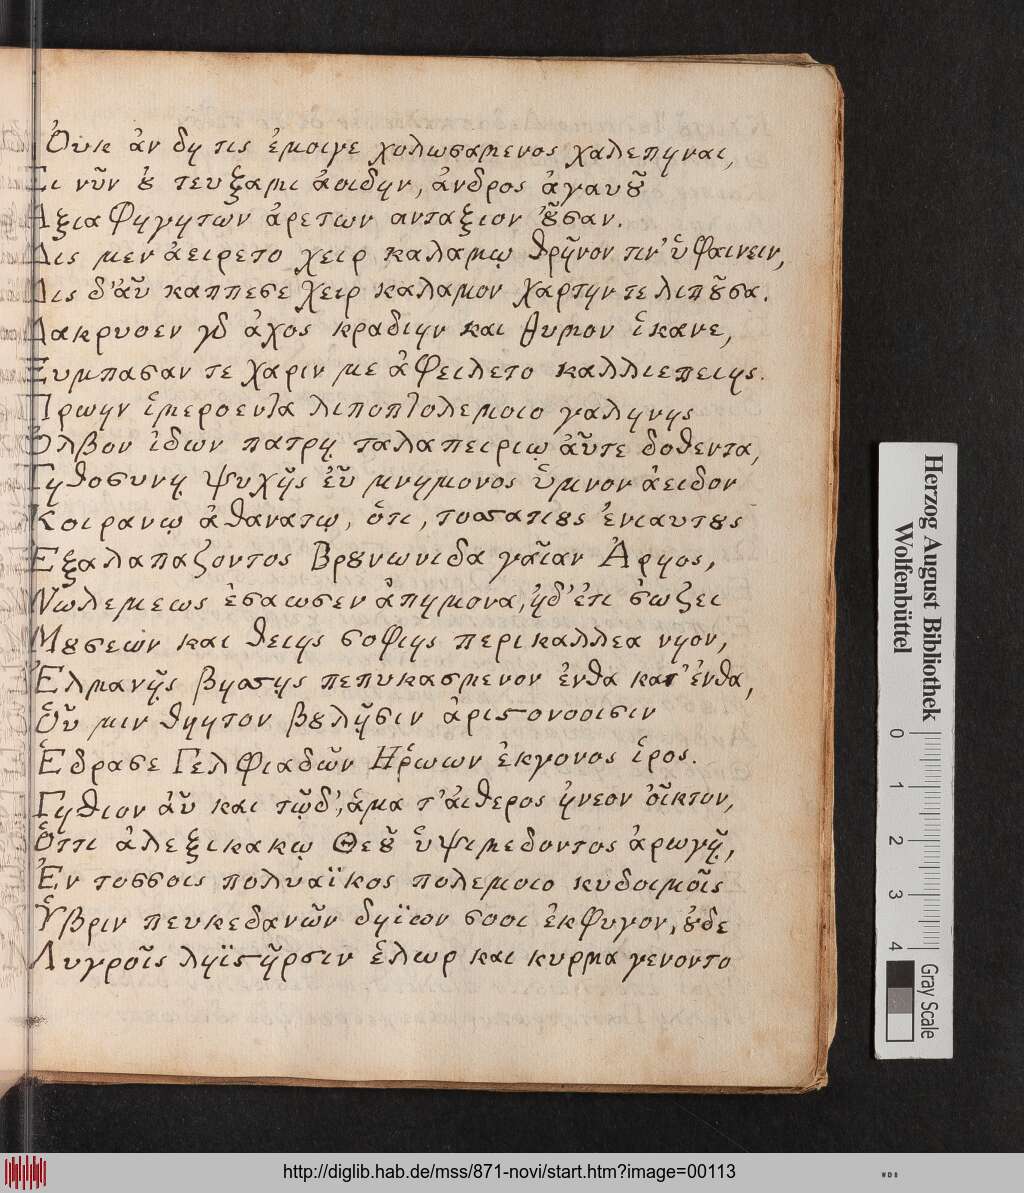 Ὀυκ ἀν δη τις ἐμοιγε χολωσαμενος χαλεπηναι,
Ει νῦν ȣ̓ τευξαμι ἀοιδην, ἀνδρος ἀγαυȣ͂
Αξια Φηγητων ἀρετων ανταξιον ȣ̓͂σαν.
Δις μεν ἀειρετο χειρ καλαμῳ θρῆνον τιν' ὑφαινειν,
Δις δ'ἀῦ καππεσε χειρ καλαμον χαρτην τε λιπȣ͂σα.
Δακρυσεν γδ ἀχος κραδιην και θυμον ἱκανε,
Ξυμπασαν τε χαριν με ἀφειλετο καλλιεπειης.
Πρωην ἱμεροενΊα λιποπΊολεμοιο γαληνης
Ὀλβον ἰδων πατρῃ ταλαπειριῳ ἀῦτε δοθεντα,
Γηθοσυνῃ ψυχῆς ἐῦ μνημονος ὑμνον ἀειδον
Κοιρανῳ ἀθανατῳ, ὁτι, τοσσατιȣς ἐνιαυτȣς
Εξαλαπαζοντος Βρȣνωνιδα γαῖαν Ἀρηος,
Νωλεμεως ἐσαωσεν ἀπημονα, ἠδ'ἐτι σωζει
Μȣσεων και θειης σοφιης περικαλλεα νηον,
Ἑλμανῆς βησσῃς πεπυκασμενον ἐνθα κατ' ἐνθα,
Ὁῦ μιν θηητον βȣλῇσιν ἀριστονοοισιν
Ἑδρασε Γελφιαδῶν Ηρωων ἐκγονος ἱρος.
Γηθιον ἀῦ και τῷδ', ἁμα τ'ἀιθερος ᾐνεον ὀῖκτον,
Ὁττι ἀλεξικακῳ Θεȣ͂ ὑψιμεδοντος ἀρωγῇ,
Ἐν τοσσοις πολυαϊκος πολεμοιο κυδοιμοῖς
Ὑβριν πευκεδανῶν δηϊων σοοι ἐκφυγον, ȣ̓δε
Λυγροῖς ληϊστῆρσιν ἑλωρ και κυρμα γενοντο
Herzog August Bibliothek
Wolfenbüttel
0 1 2 3 4
Gray Scale
http://diglib.hab.de/mss/871-novi/start.htm?image=00113